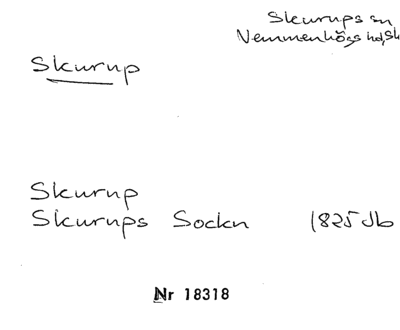 Skurups sn
Vemmenhögs hd, Sk
Skurup
Skurup
Skurups Sockn 1825 Jb
Nr 18318